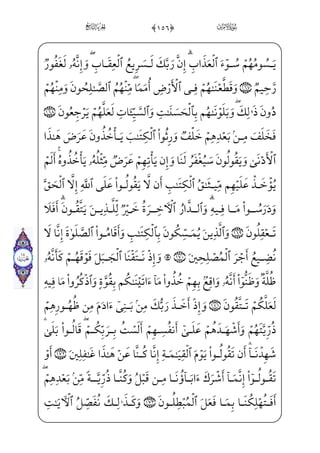 ﴿١٥٦﴾
يَسُومُهُمْ سُوٓءَ ٱلْعَذَابِ ۗ إِنَّ رَبَّكَ لَسَرِيعُ ٱلْعِقَابِ ۖ وَإِنَّهُۥ لَغَفُورٌ
رَّحِيمٌ ١٦٧ وَقَطَّعْنَٰهُمْ فِى ٱلْأَرْضِ أُمَمًا ۖ مِّنْهُمُ ٱلصَّٰلِحُونَ وَمِنْهُمْ
دُونَ ذَٰلِكَ ۖ وَبَلَوْنَٰهُم بِٱلْحَسَنَٰتِ وَٱلسَّيِّـَٔاتِ لَعَلَّهُمْ يَرْجِعُونَ ١٦٨
فَخَلَفَ مِنۢ بَعْدِهِمْ خَلْفٌ وَرِثُوا۟ ٱلْكِتَٰبَ يَأْخُذُونَ عَرَضَ هَٰذَا
ٱلْأَدْنَىٰ وَيَقُولُونَ سَيُغْفَرُ لَنَا وَإِن يَأْتِهِمْ عَرَضٌ مِّثْلُهُۥ يَأْخُذُوهُ ۚ أَلَمْ
يُؤْخَذْ عَلَيْهِم مِّيثَٰقُ ٱلْكِتَٰبِ أَن لَّا يَقُولُوا۟ عَلَى ٱللَّهِ إِلَّا ٱلْحَقَّ
وَدَرَسُوا۟ مَا فِيهِ ۗ وَٱلدَّارُ ٱلْـَٔاخِرَةُ خَيْرٌ لِّلَّذِينَ يَتَّقُونَ ۗ أَفَلَا
تَعْقِلُونَ ١٦٩ وَٱلَّذِينَ يُمَسِّكُونَ بِٱلْكِتَٰبِ وَأَقَامُوا۟ ٱلصَّلَوٰةَ إِنَّا لَا
نُضِيعُ أَجْرَ ٱلْمُصْلِحِينَ ١٧٠ ۞ وَإِذْ نَتَقْنَا ٱلْجَبَلَ فَوْقَهُمْ كَأَنَّهُۥ
ظُلَّةٌ وَظَنُّوٓا۟ أَنَّهُۥ وَاقِعٌۢ بِهِمْ خُذُوا۟ مَآ ءَاتَيْنَٰكُم بِقُوَّةٍ وَٱذْكُرُوا۟ مَا فِيهِ
لَعَلَّكُمْ تَتَّقُونَ ١٧١ وَإِذْ أَخَذَ رَبُّكَ مِنۢ بَنِىٓ ءَادَمَ مِن ظُهُورِهِمْ
ذُرِّيَّتَهُمْ وَأَشْهَدَهُمْ عَلَىٰٓ أَنفُسِهِمْ أَلَسْتُ بِرَبِّكُمْ ۖ قَالُوا۟ بَلَىٰ ۛ
شَهِدْنَآ ۛ أَن تَقُولُوا۟ يَوْمَ ٱلْقِيَٰمَةِ إِنَّا كُنَّا عَنْ هَٰذَا غَٰفِلِينَ ١٧٢ أَوْ
تَقُولُوٓا۟ إِنَّمَآ أَشْرَكَ ءَابَآؤُنَا مِن قَبْلُ وَكُنَّا ذُرِّيَّةً مِّنۢ بَعْدِهِمْ ۖ
أَفَتُهْلِكُنَا بِمَا فَعَلَ ٱلْمُبْطِلُونَ ١٧٣ وَكَذَٰلِكَ نُفَصِّلُ ٱلْـَٔايَٰتِ